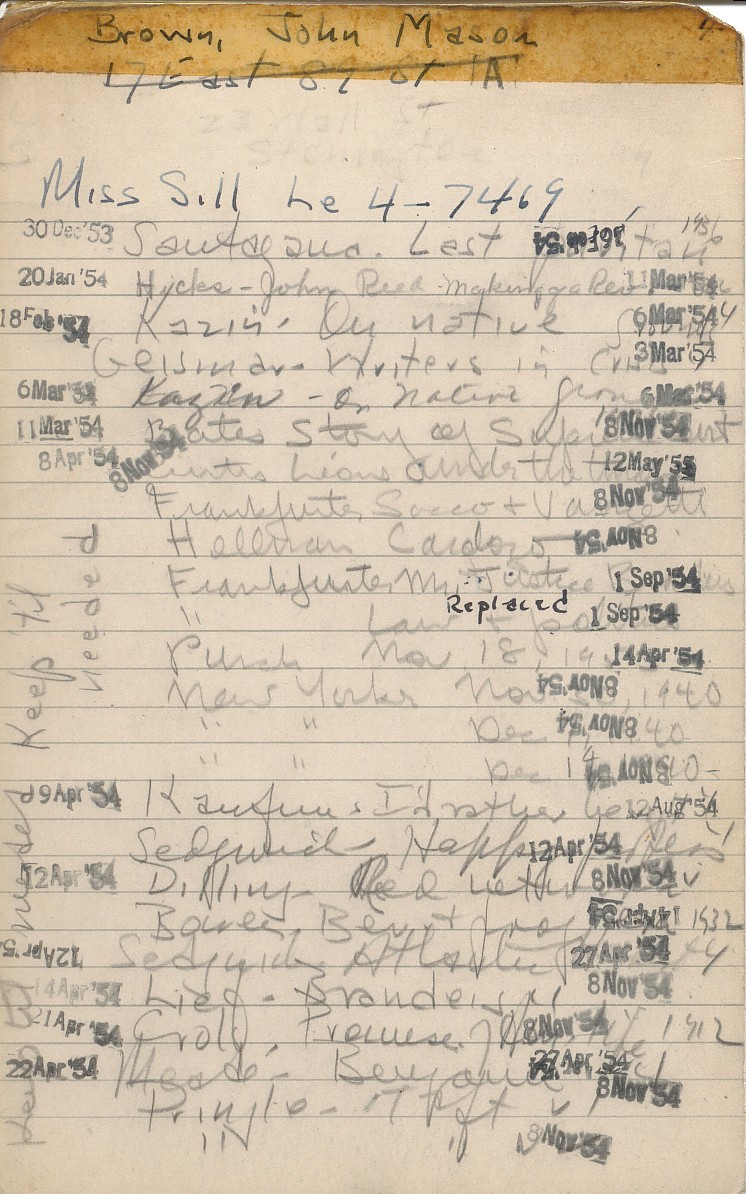 Brown, John Mason 4
17 East 89 St 1A
St
Miss Sill Le 4-7469
30 Dec '53 Santayana. Last 16 Feb '54 1936
20 Jan '54 Hicks - John Reed - Making of a Rev 11 Mar '54
18 Feb '54 Kazin - On native 6 Mar '54
Geismar - Writers in Crisis 3 Mar '54
6 Mar '54 Kazin - On native grounds 6 Mar '54
11 Mar '54 Bates Story of Supreme Court 8 Nov '54
8 Apr '54 8 Nov '54 Curtis Lions under the throne 12 May '55
Frankfurter Sacco + Vanzetti 8 Nov '54
Hellman Cardozo 8 NOV '54
Frankfurter Mr. Justice 1 Sep '54
Replaced
" Law + politics 1 Sep '54
Punch Nov 18, 14 Apr '54
New Yorker Nov 1940 8 NOV '54
" " Dec 40 8 NOV '54
" " Dec 14 40 8 NOV '54
9 Apr '54 Kaufman I'd rather be 12 Aug '54
Sedgwick Happy 12 Apr '54
12 Apr '54 Dilling Red network 8 Nov '54
1932
12 Apr '54 Sedgwick Atlantic 27 Apr '54
14 Apr '54 Lief - Brandeis 8 Nov '54
21 Apr '54 Croly, Promise 8 Nov '54 1912
22 Apr '54 27 Apr '54
Pringle - Taft 8 Nov '54
" " 8 Nov '54
Keep 'til needed
Keep 'til needed